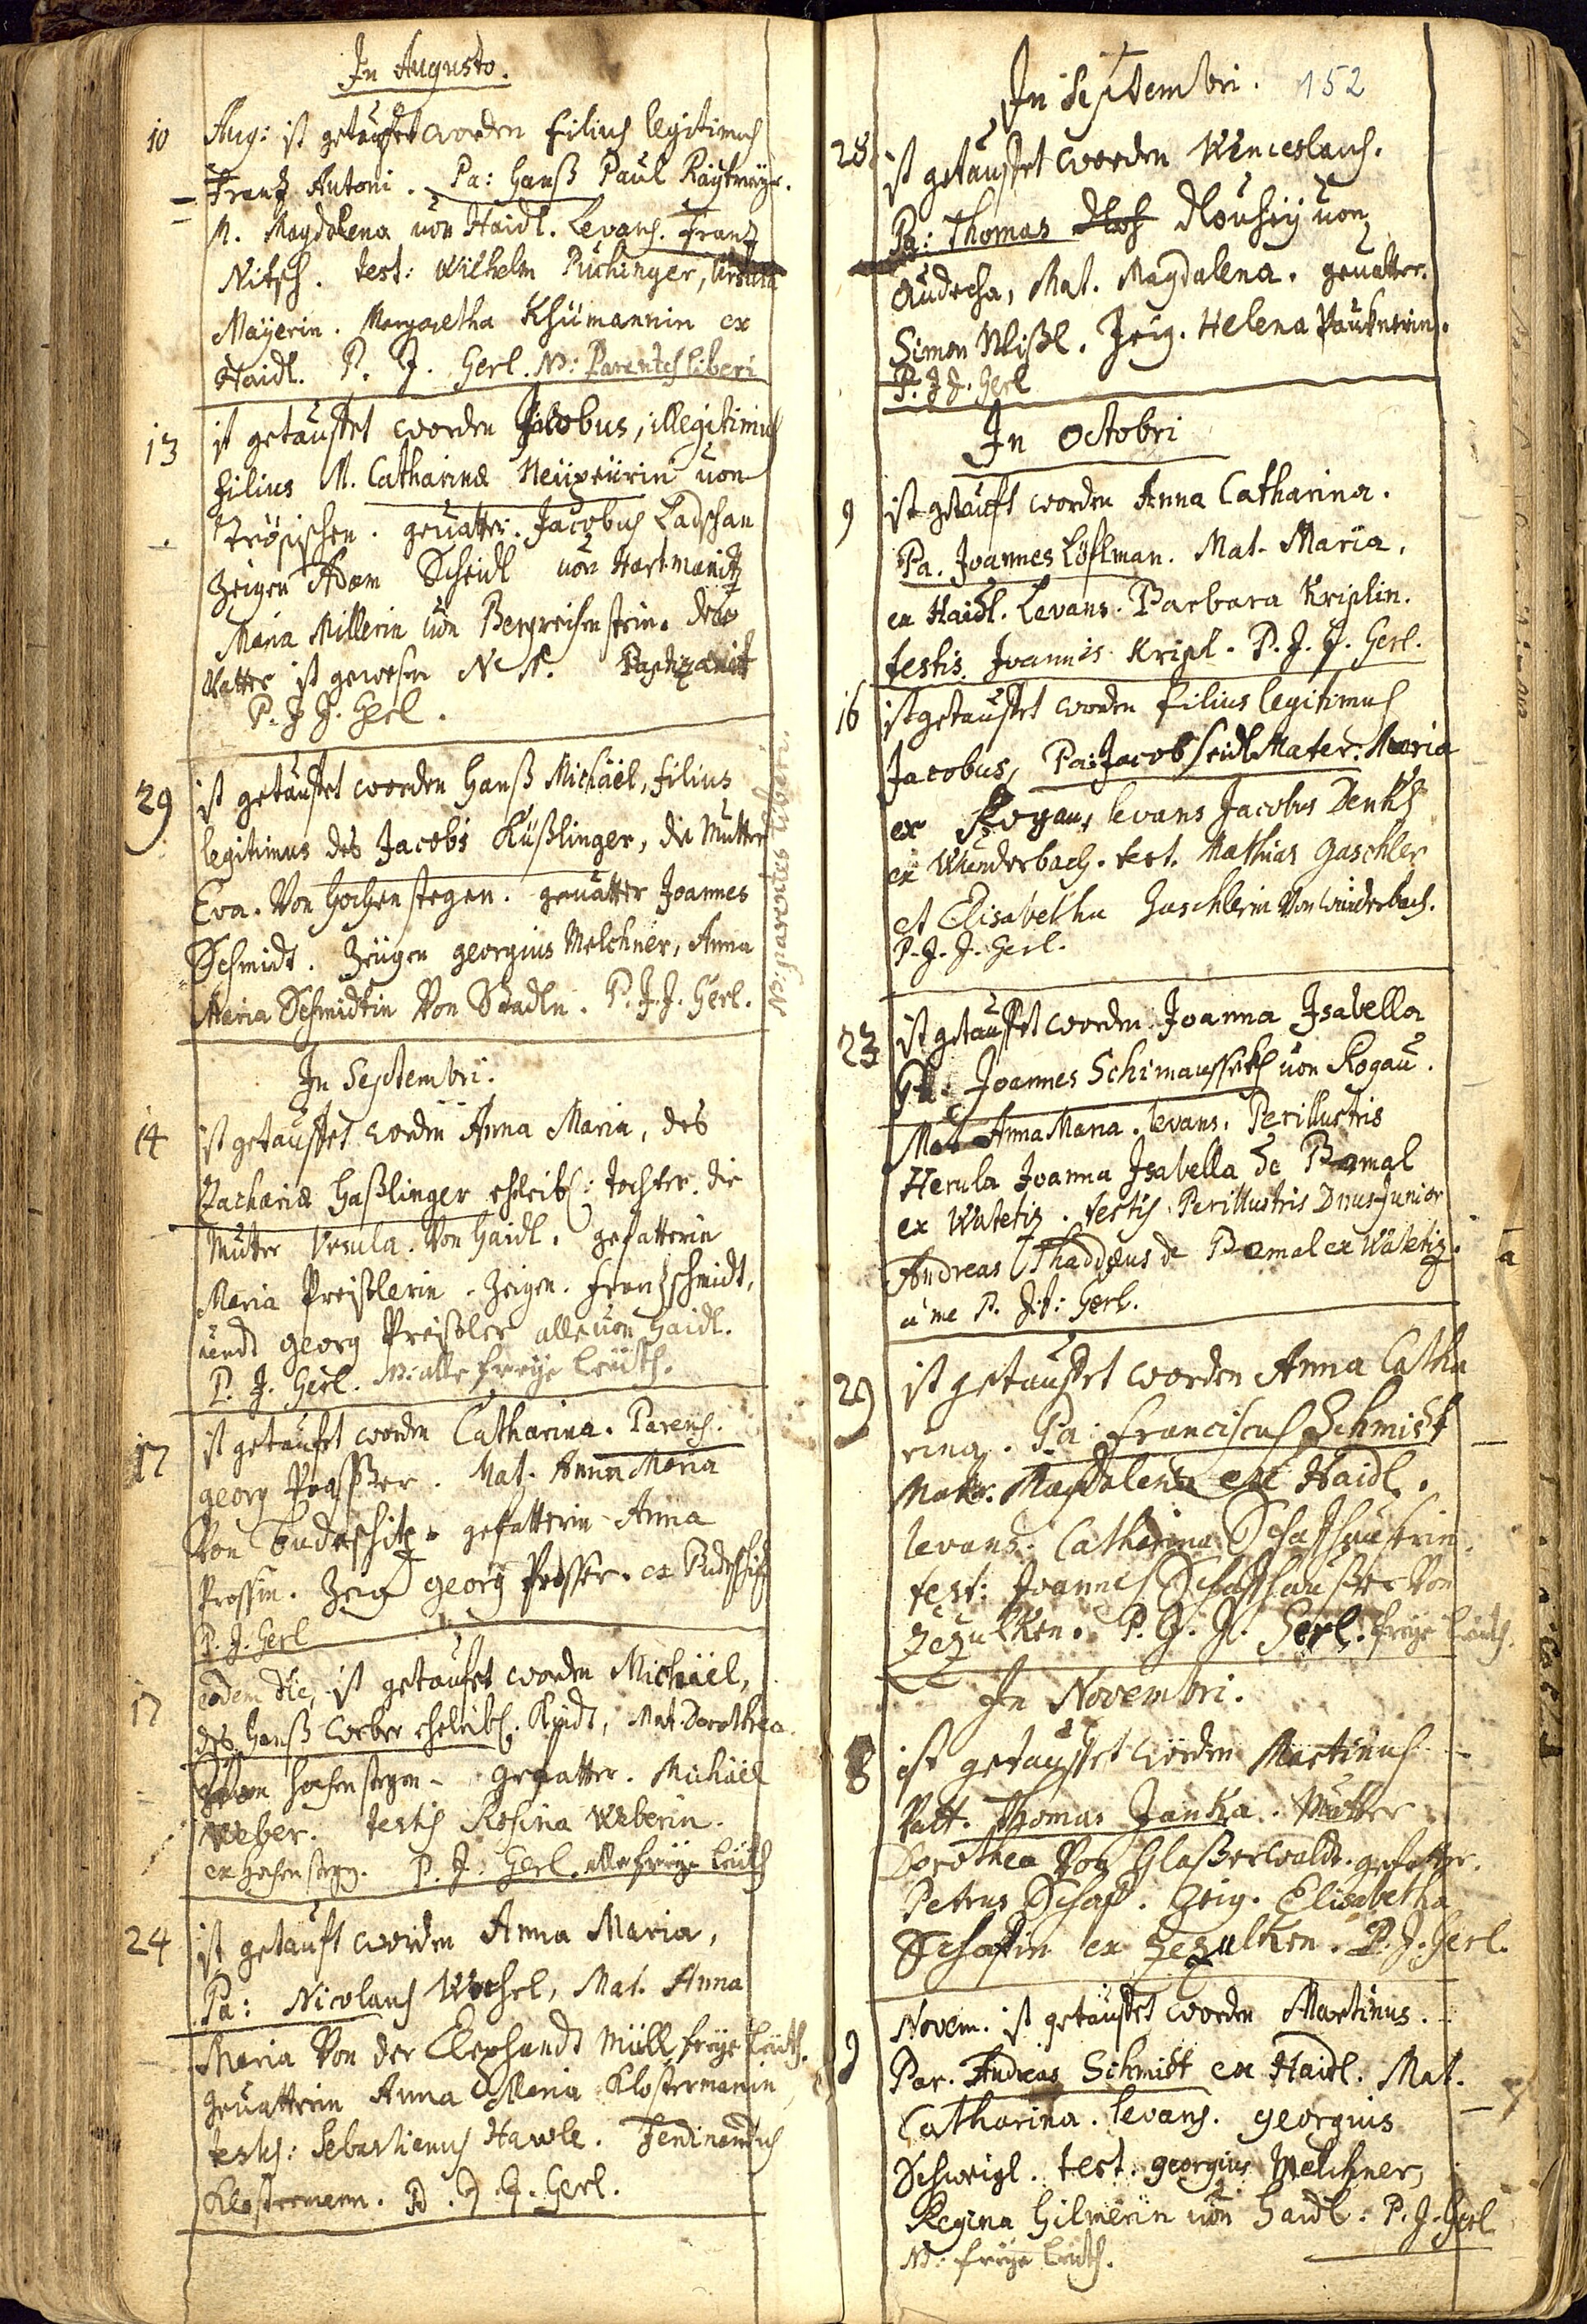 In Augusto.
10 Aug: ist getauffet worden filius legitimus
Frantz Antoni. Pa: Hanß Paul
M. Magdalena von Haidl. Levans. Frantz
Nitsch. test: Wilhelm Puchinger, Ursula
Mayerin. Margaretha Khümannin ex
Haidl. P. J. Gerl. NB: Parentes liberi
13 ist getauffet worden Jacobus, illegitimus
filius M. Catharinæ von
gevatter. Jacobus Ladschan
Zeigen Adam Seidl von Hartmanitz
Maria Millerin von Bergreichenstein. der
Vatter ist gewesen N. N.
P. J. J. Gerl.
29 ist getauffet worden Hanß Michäel, filius
legitimus des Jacobs Küßlinger, die Mutter
Eva. Von Hochenstegen. gevatter Joannes
Schmidt. Zeügen Georgius Melchner, Anna
Maria Schmidtin Von Stadln. P. J. J. Gerl.
N: parentes liberi
In Septembri.
14 ist getauffet worden Anna Maria, des
Zachariæ Haßlinger ehleibl: Tochter. die
Mutter Ursula. Von Haidl. gefatterin
Maria Preißlerin. Zeigen. Frantz Schmidt,
undt Georg Preißler alle von Haidl.
P. J. Gerl. NB: alle freye Leüth.
17 ist getaufet worden Catharina. Parens.
Georg Prosser. Mat. Anna Maria
Von gefatterin Anna
Prossin. Zeig Georg Prosser. ex
P. J. Gerl
17 eodem die, ist getaufet worden Michäel,
des Hanß Weber ehleibl. Kindt, Mat. Dorothea
Hochenstegen. gefatter. Michäel
Weber. testis Rosina Weberin.
ex Hochenstegn. P. J. Gerl. alle freye Leüth
24 ist getauft worden Anna Maria,
Pa: Nicolaus Mat. Anna
Maria Von der Müll freye Leüth.
gevatterin Anna Maria Klostermanin,
testes: Sebastianus Hawle. Ferdinandus
Klostermann. P. J. J. Gerl.
In Septembri. 152
28 ist getauffet worden Wenceslaus.
Pa: Thomas Dlouhÿ von
Mat. Magdalena. gevatter.
Simon Zeig. Helena
P. J. J. Gerl
In Octobri
9 ist getauft worden Anna Catharina.
Pa. Joannes Löflman. Mat. Maria.
ex Haidl. Levans. Barbara Kriplin.
testis Joannes Kripl. P. J. J. Gerl.
16 ist getauffet worden filius legitimus
Jacobus, Pa: Jacob Seidl Mater. Maria
ex Rogau, levans Jacobus Denkh
ex Wunderbach. test. Mathias Gaschler
et Elisabetha Gaschlerin Von Wunderbach.
P. J. J. Gerl.
23 ist getauffet worden Joanna Isabella
Pa. Joannes von Rogau.
Mat Anna Maria. levans. Perillustris
Herula Joanna Isabella de Bamal
ex Watetiz. testis Perillustris Dnus Junior
Andreas Thaddæus de Bamal ex Watetiz.
a me P. J. J: Gerl.
29 ist getauffet worden Anna Catha
rina. Pa: Franciscus Schmidt
Mater. Magdalena ex Haidl.
levans. Catharina Schafhauserin.
test: Joannes Schafhaußer Von
Zezulken. P. J. J. Gerl. freye Leüth.
In Novembri.
8 ist getauffet worden Martinus
Vatt. Thomas Janka. Mutter
Dorothea Von Glaßerwaldt. gefatter.
Petrus Schaf. Zeig. Elisabetha
Schafin ex Zezulken. P. J. Gerl.
9 Novem. ist getauffet worden Martinus.
Par. Andreas Schmidt ex Haidl. Mat.
Catharina. levans. Georgius
Schweigl. test. Georgius Melchner,
Regina Hilmerin von Haidl. P. J. Gerl
NB: freye Leüth.